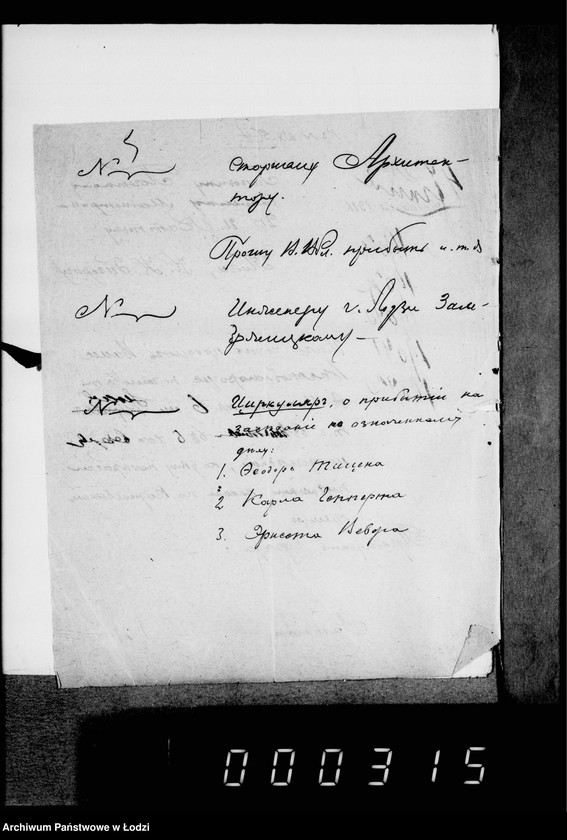 №
старшему Архитек-
тору.
Прошу В. Вбл. прибыть и. т. д
№
Инженеру г. Лодзи
№
Циркуляръ, о прибытіи на
засѣданіе по означенному
дѣлу:
1. Теодора
2 Карла Гепперта
3. Эрнста Вевера
000315
Archiwum Państwowe w Łodzi